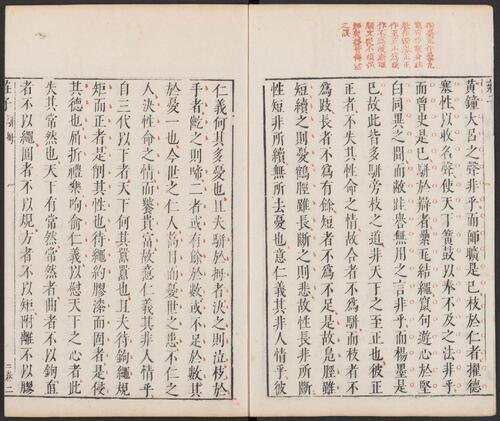 黃鐘大呂之聲非乎而師曠是已枝於仁者擢德
塞性以收名聲使天下簧鼓以奉不及之法非乎
而曾史是已駢於辯者纍瓦結繩竄句遊心於堅
白同異之間而敝跬譽無用之言非乎而楊墨是
已故此皆多駢旁枝之道非天下之至正也彼正
正者不失其性命之情故合者不爲駢而枝者不
爲跂長者不爲有餘短者不爲不足是故鳧脛雖
短續之則憂鶴脛雖長斷之則悲故性長非所斷
性短非所續無所去憂也意仁義其非人情乎彼
仁義何其多憂也且夫駢於拇者決之則泣枝於
手者齕之則啼二者或有餘於數或不足於數其
於憂一也今世之仁人蒿目而憂世之患不仁之
人決性命之情而饕貴富故意仁義其非人情乎
自三代以下者天下何其囂囂也且夫待鉤繩規
矩而正者是削其性也待繩約膠漆而固者是侵
其德也屈折禮樂呴俞仁義以慰天下之心者此
失其常然也天下有常然常然者曲者不以鉤直
者不以繩圓者不以規方者不以矩附離不以膠
莊子 駢拇